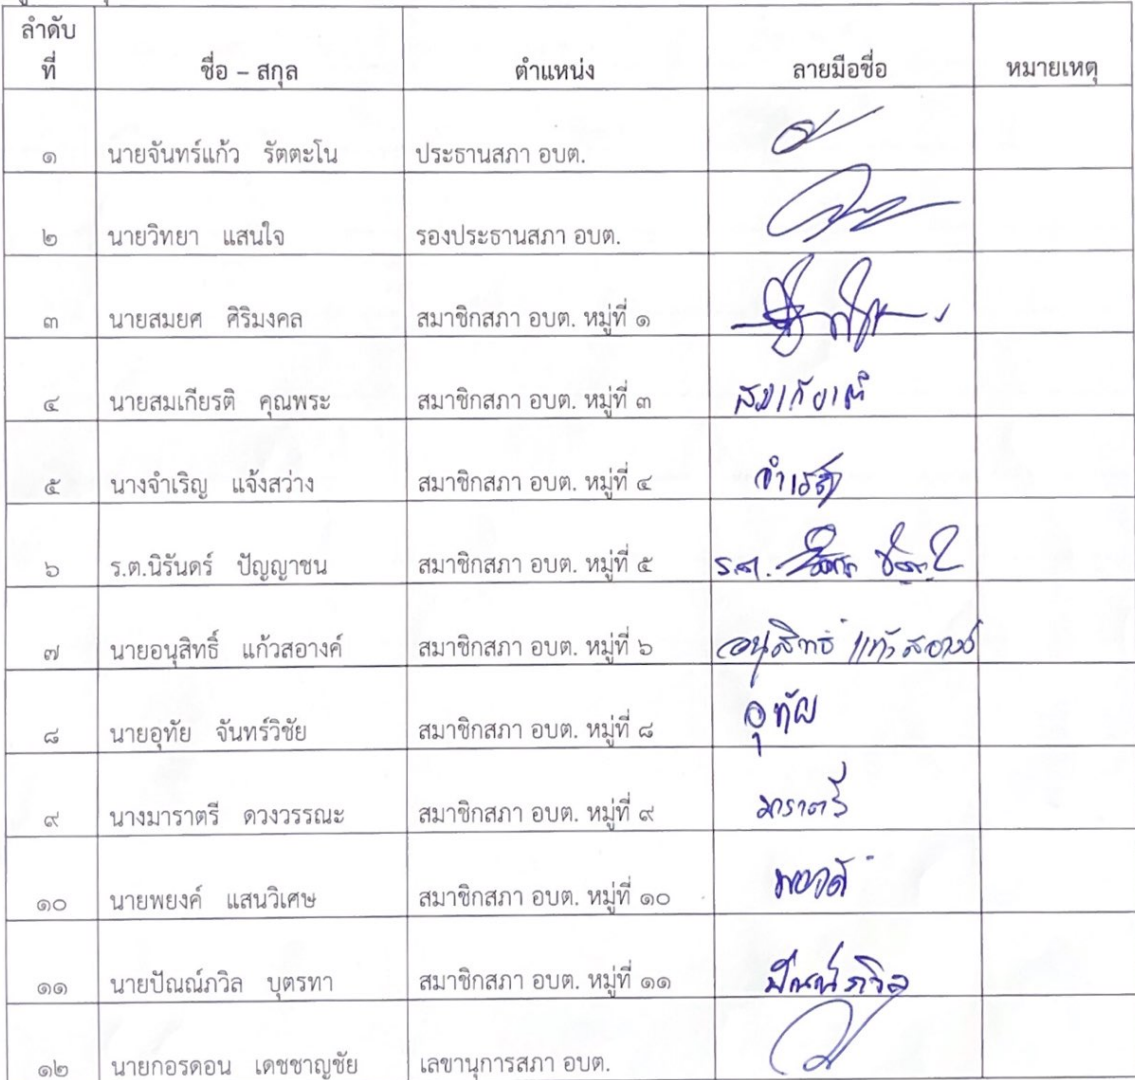 ลำดับ
ที่ ชื่อ – สกุล ตำแหน่ง ลายมือชื่อ หมายเหตุ
๑ นายจันทร์แก้ว รัตตะโน ประธานสภา อบต.
๒ นายวิทยา แสนใจ รองประธานสภา อบต.
๓ นายสมยศ ศิริมงคล สมาชิกสภา อบต. หมู่ที่ ๑
๔ นายสมเกียรติ คุณพระ สมาชิกสภา อบต. หมู่ที่ ๓ สมเกียรติ
๕ นางจำเริญ แจ้งสว่าง สมาชิกสภา อบต. หมู่ที่ ๔ จำเริญ
๖ ร.ต.นิรันดร์ ปัญญาชน สมาชิกสภา อบต. หมู่ที่ ๕ ร.ต.
๗ นายอนุสิทธิ์ แก้วสอางค์ สมาชิกสภา อบต. หมู่ที่ ๖ อนุสิทธิ์ แก้วสอางค์
๘ นายอุทัย จันทร์วิชัย สมาชิกสภา อบต. หมู่ที่ ๘ อุทัย
๙ นางมาราตรี ดวงวรรณะ สมาชิกสภา อบต. หมู่ที่ ๙ มาราตรี
๑๐ นายพยงค์ แสนวิเศษ สมาชิกสภา อบต. หมู่ที่ ๑๐ พยงค์
๑๑ นายปัณณ์ภวิล บุตรทา สมาชิกสภา อบต. หมู่ที่ ๑๑ ปัณณ์ภวิล
๑๒ นายกอรดอน เดชชาญชัย เลขานุการสภา อบต.